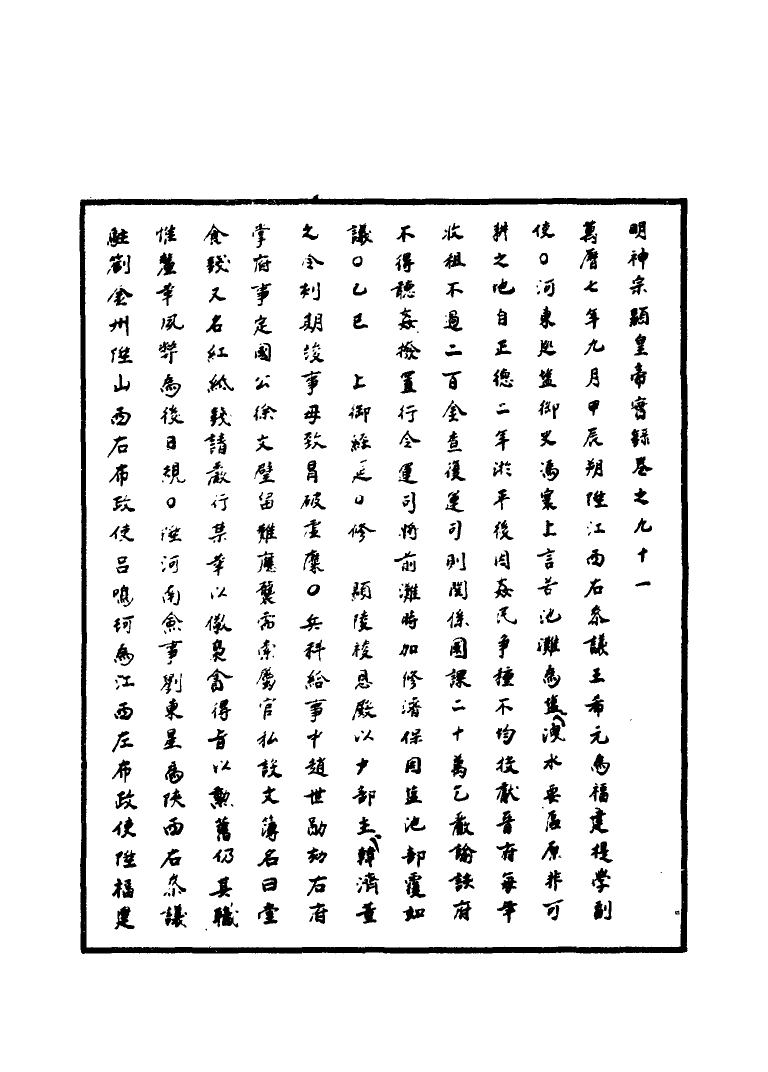 明神宗顯皇帝實錄卷之九十一
萬曆七年九月甲辰朔陞江西右叅議王希元為福建提學副
使○河東巡鹽御史馮寀上言苦池灘為鹽洩水要區原非可
耕之地自正德二年淤平後因姦民爭種不均投獻晉府每年
收租不過二百金查復運司則関係國課二十萬乞嚴諭該府
不得聽姦撥置行令運司將前灘時加修濬保固鹽池部覆如
議○乙巳　上御經筵○修　顯陵祾恩殿以少部主韓濟董
之令刻期竣事毋致冒破虛糜○兵科給事中趙世勛劾右府
掌府事定國公徐文璧留難應襲需索屬官私設文簿名曰堂
食錢又名紅紙錢請嚴行某革以儆梟貪得旨以勲舊仍其職
惟釐革夙弊為後日規○陞河南僉事劉東星為陝西右叅議
駐劄金州陞山西右布政使呂鳴珂為江西左布政使陞福建